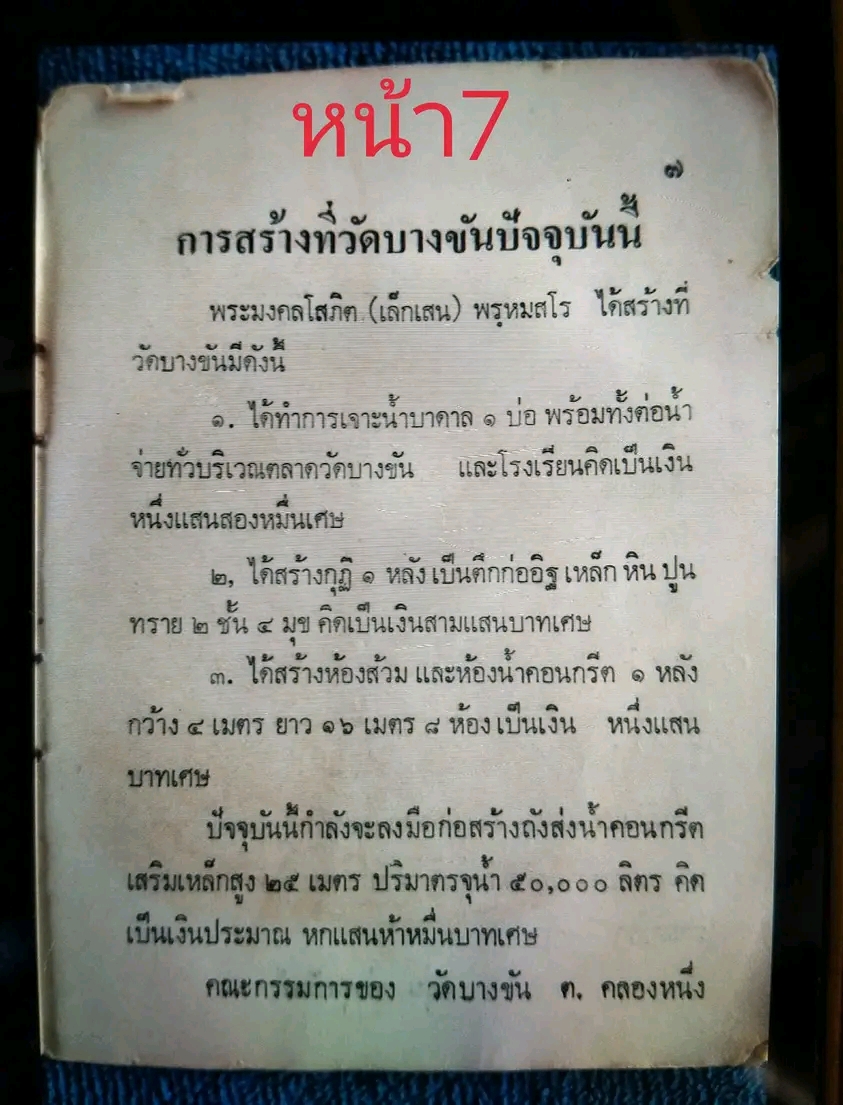 หน้า7
๗
การสร้างที่วัดบางขันปัจจุบันนี้
พระมงคลโสภิต (เล็กเสน) พรหมสโร ได้สร้างที่
วัดบางขันมีดังนี้
๑. ได้ทำการเจาะน้ำบาดาล ๑ บ่อ พร้อมทั้งต่อน้ำ
จ่ายทั่วบริเวณตลาดวัดบางขัน และโรงเรียนคิดเป็นเงิน
หนึ่งแสนสองหมื่นเศษ
๒, ได้สร้างกุฏิ ๑ หลัง เป็นตึกก่ออิฐ เหล็ก หิน ปูน
ทราย ๒ ชั้น ๔ มุข คิดเป็นเงินสามแสนบาทเศษ
๓. ได้สร้างห้องส้วม และห้องน้ำคอนกรีต ๑ หลัง
กว้าง ๔ เมตร ยาว ๑๖ เมตร ๘ ห้อง เป็นเงิน หนึ่งแสน
บาทเศษ
ปัจจุบันนี้กำลังจะลงมือก่อสร้างถังส่งน้ำคอนกรีต
เสริมเหล็กสูง ๒๕ เมตร ปริมาตรจุน้ำ ๕๐,๐๐๐ ลิตร คิด
เป็นเงินประมาณ หกแสนห้าหมื่นบาทเศษ
คณะกรรมการของ วัดบางขัน ต. คลองหนึ่ง